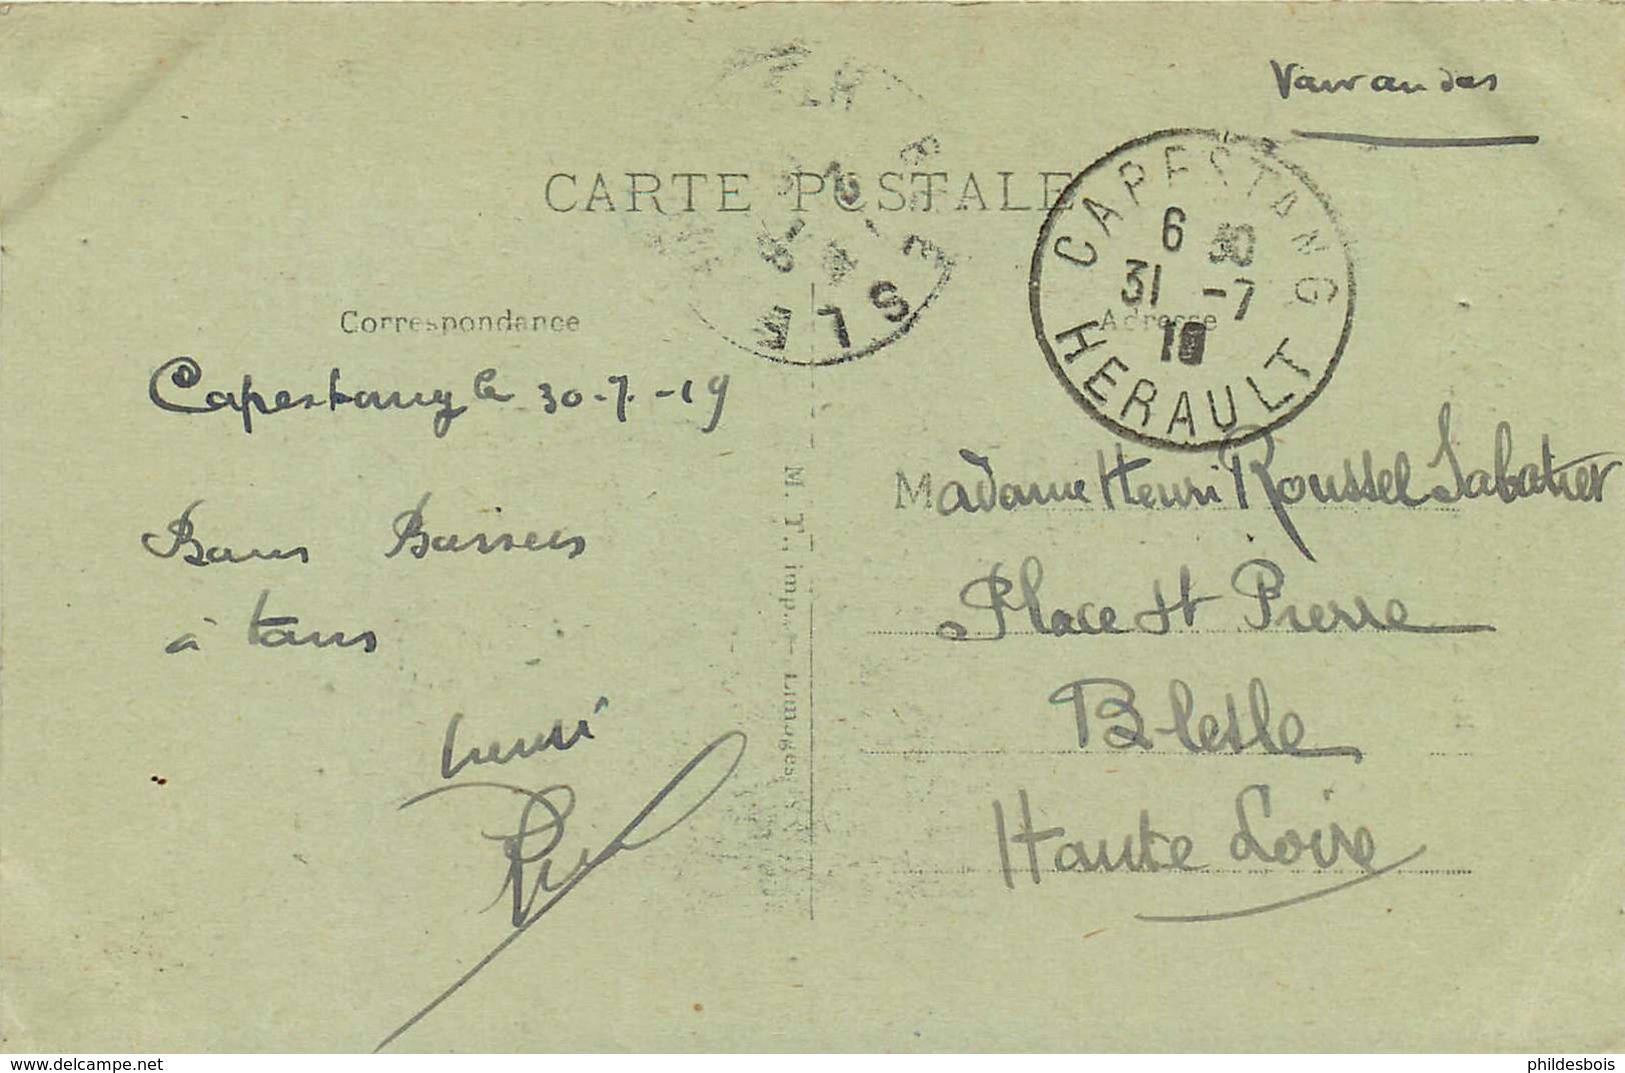 CARTE POSTALE
Correspondance
Adresse
CAPESTANG
6 30
31 -7
19
HERAULT
BLESLE
Capestang le 30-7-19
Bons Baisers
à tous
henri
M. T., imp., Limoges
Madame Henri Roussel Sabatier
Place St Pierre
Blesle
Haute Loire
delcampe.net
phildesbois